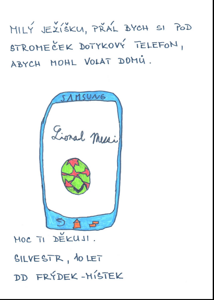 MILÝ JEŽÍŠKU, PŘÁL BYCH SI POD
STROMEČEK DOTYKOVÝ TELEFON,
ABYCH MOHL VOLAT DOMŮ.
SAMSUNG
Lional Messi
MOC TI DĚKUJI.
SILVESTR, 10 LET
DD FRÝDEK-MÍSTEK